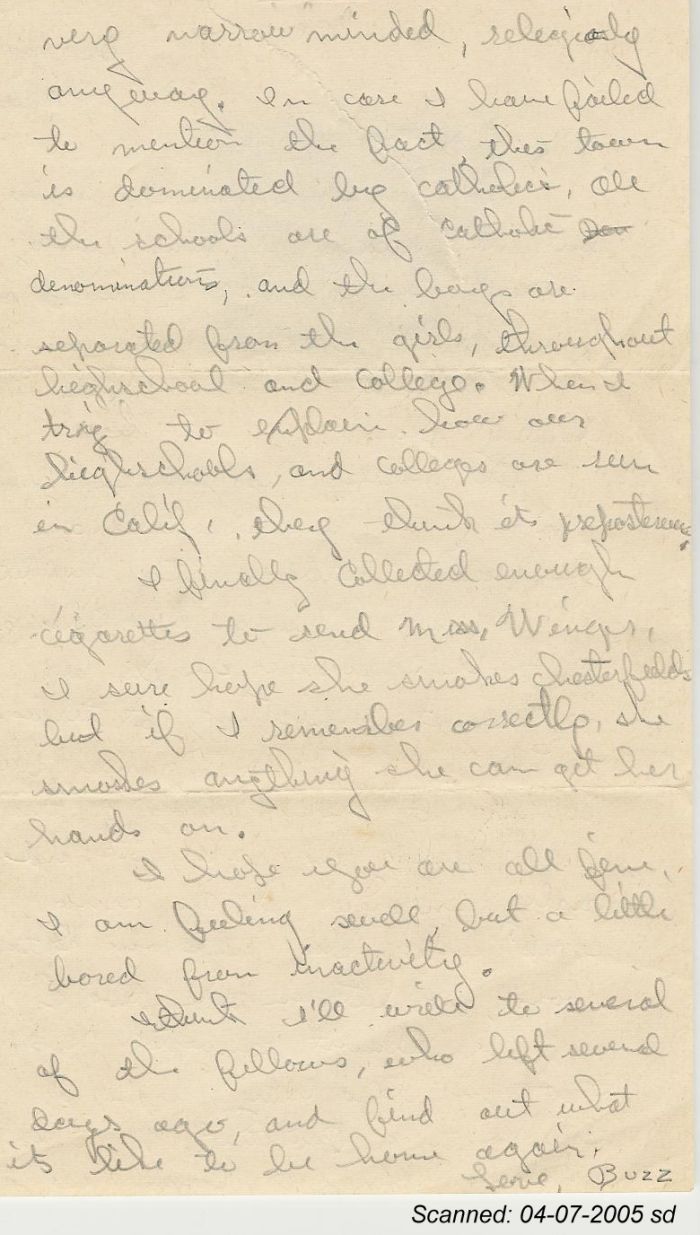 very narrow minded, religiously
anyway. In case I have failed
to mention the fact, this town
is dominated by catholics, all
the schools are of catholic
denominations, and the boys are
separated from the girls, throughout
highschool and college. When I
try to explain how our
highschools, and colleges are run
in Calif, they think its
I finally collected enough
cigarettes to send
I sure hope she smokes chesterfields
but if I remember correctly, she
smokes anything she can get her
hands on.
I hope you are all fine,
I am feeling swell, but a little
bored from inactivity.
I think I'll write to several
of the fellows, who left several
days ago, and find out what
its like to be home again.
Love, Buzz
Scanned: 04-07-2005 sd